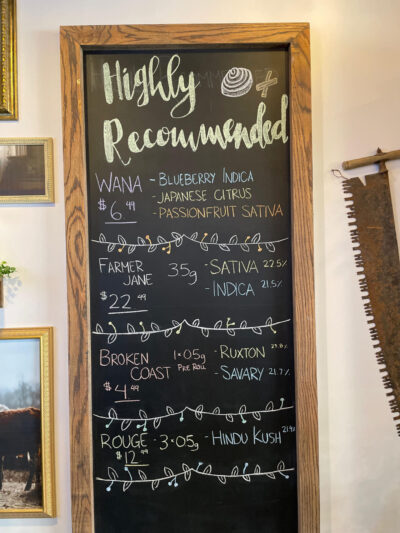 Highly
Recommended
WANA - BLUEBERRY INDICA
- JAPANESE CITRUS
$6.49 - PASSIONFRUIT SATIVA
FARMER JANE 3.5g - SATIVA 22.5%
$22.49 - INDICA 21.5%
BROKEN COAST 1×0.5g PRE ROLL - RUXTON
$4.49 - SAVARY 21.7%
ROUGE - 3×0.5g - HINDU KUSH
$12.49